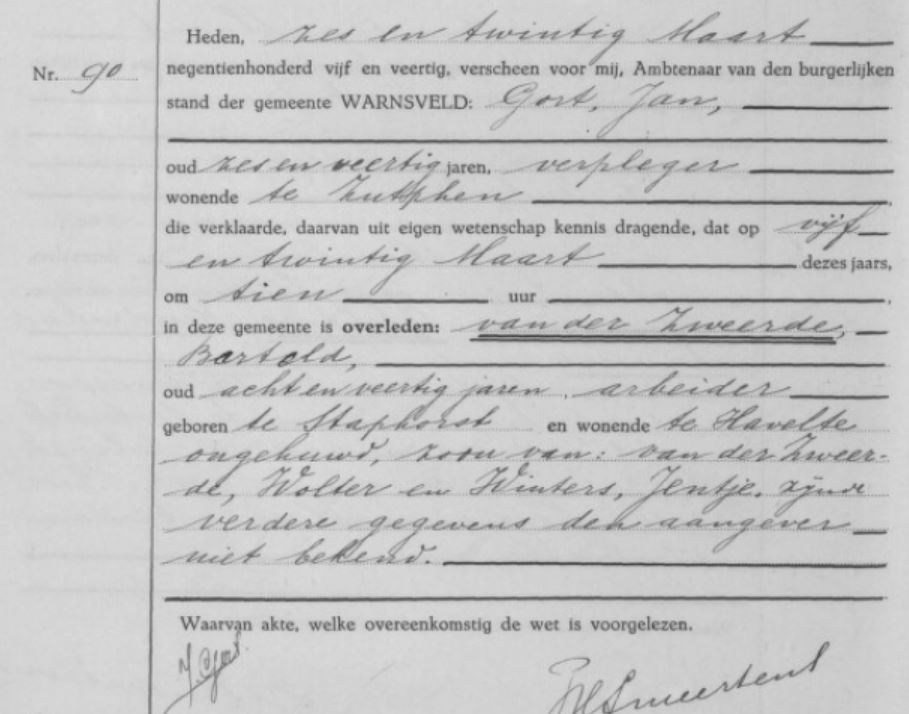 Heden, zes en twintig Maart
Nr. 90
negentienhonderd vijf en veertig, verscheen voor mij, Ambtenaar van den burgerlijken
stand der gemeente WARNSVELD: Gort, Jan,
oud zes en veertig jaren, verpleger
wonende te Zutphen,
die verklaarde, daarvan uit eigen wetenschap kennis dragende, dat op vijf
en twintig Maart dezes jaars,
om tien uur,
in deze gemeente is overleden: van der Zweerde,
Bartold,
oud acht en veertig jaren, arbeider
geboren te Staphorst en wonende te Havelte
ongehuwd, zoon van: van der Zweer-
de, Wolter en Winters, Jentje, zijnde
verdere gegevens den aangever
niet bekend.
Waarvan akte, welke overeenkomstig de wet is voorgelezen.
J. Gort.
Smeertens